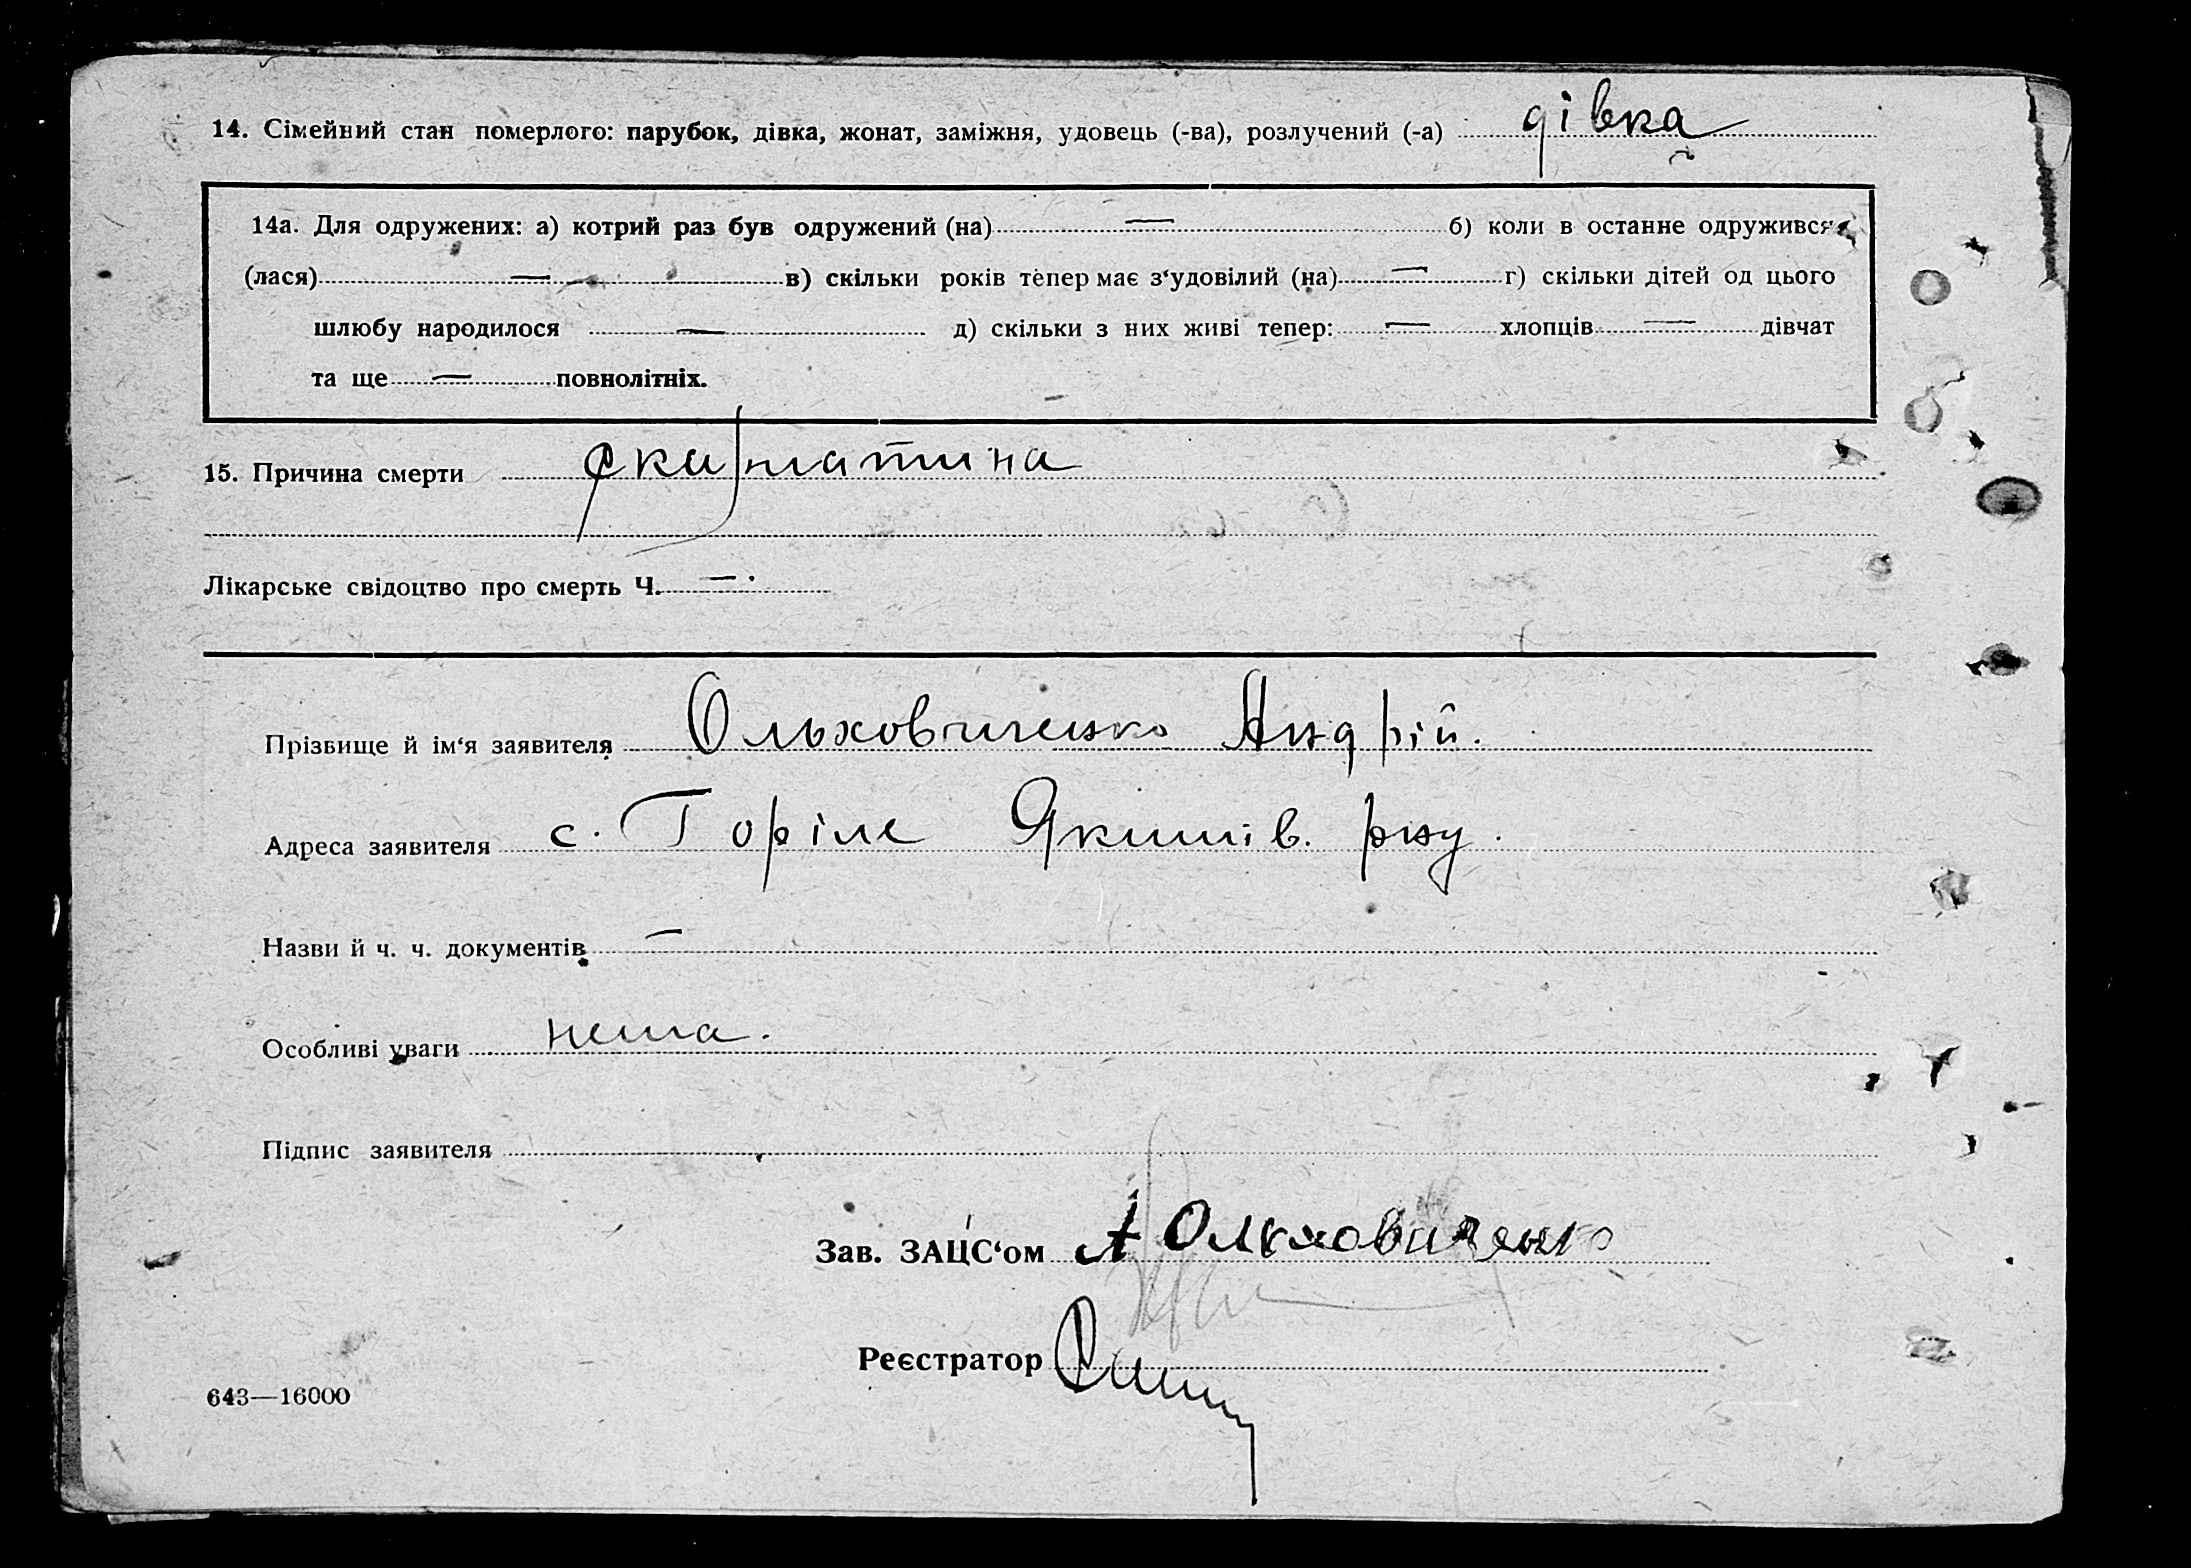 14. Сімейний стан померлого: парубок, дівка, жонат, заміжня, удовець (-ва), розлучений (-а) дівка
14а. Для одружених: а) котрий раз був одружений (на) — б) коли в останнє одружився
(лася) — в) скільки років тепер має з‘удовілий (на) — г) скільки дітей од цього
шлюбу народилося — д) скільки з них живі тепер: — хлопців — дівчат
та ще — повнолітніх.
15. Причина смерти скарлатина
Лікарське свідоцтво про смерть Ч. —
Прізвище й ім‘я заявителя Ольховиченко Андрій.
Адреса заявителя с. Горіле Якимів. рну.
Назви й ч. ч. документів —
Особливі уваги нема.
Підпис заявителя
Зав. ЗАЦС‘ом А Ольховиченко
Реєстратор
643—16000